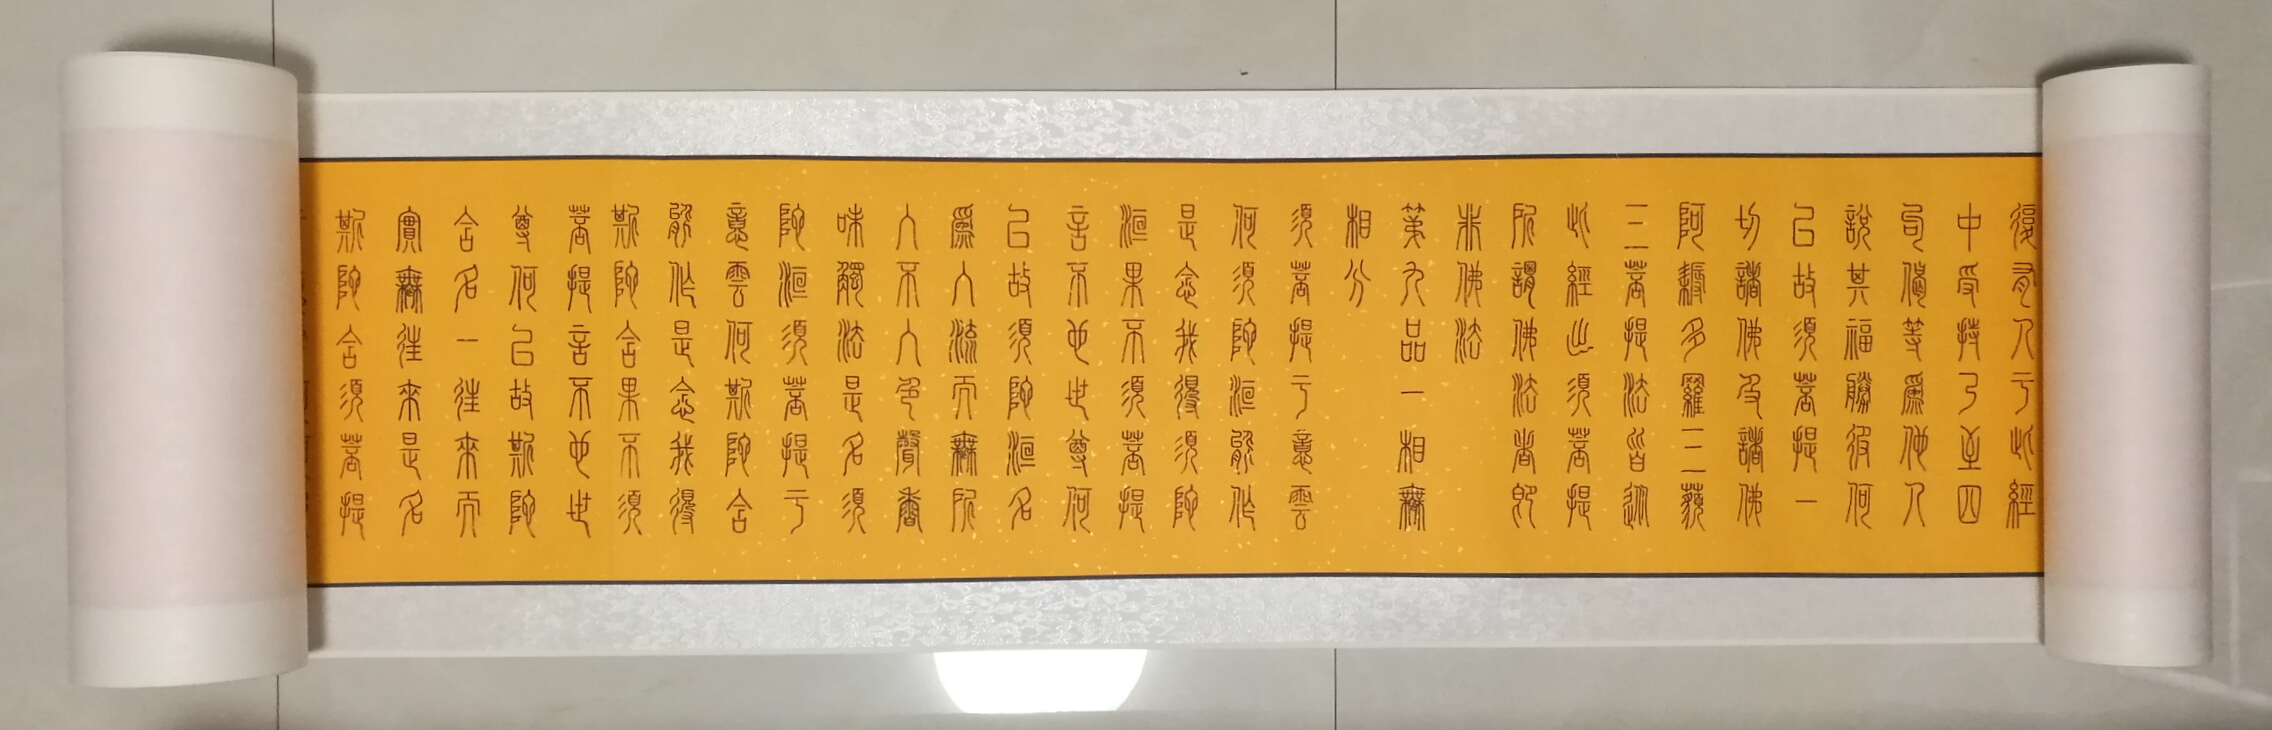 復有人于此經
中受持乃至四
句偈等爲他人
說其福勝彼何
以故須菩提一
切諸佛及諸佛
阿耨多羅三藐
三菩提法皆從
此經出須菩提
所謂佛法者即
非佛法
第九品一相無
相分
須菩提于意雲
何須陀洹能作
是念我得須陀
洹果不須菩提
言不也世尊何
以故須陀洹名
爲入流而無所
入不入色聲香
味觸法是名須
陀洹須菩提于
意雲何斯陀含
能作是念我得
斯陀含果不須
菩提言不也世
尊何以故斯陀
含名一往來而
實無往來是名
斯陀含須菩提